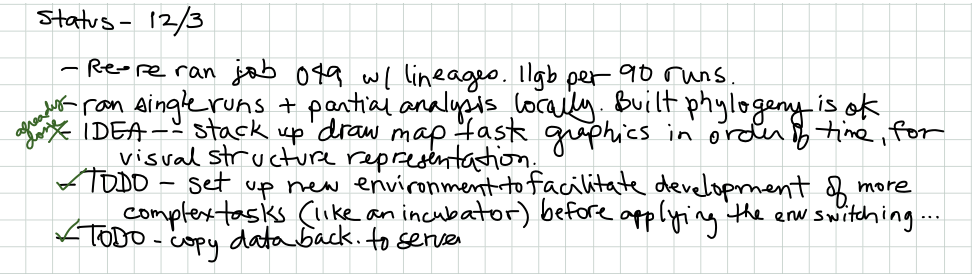 Status - 12/3
- Re-re ran job 049 w/ lineages. 11gb per 90 runs.
- ran single runs + partial analysis locally. Built phylogeny is ok
already done
- IDEA -- stack up draw map task graphics in order of time, for
visual structure representation.
- TODO - set up new environment to facilitate development of more
complex tasks (like an incubator) before applying the env switching...
- TODO - copy data back. to server